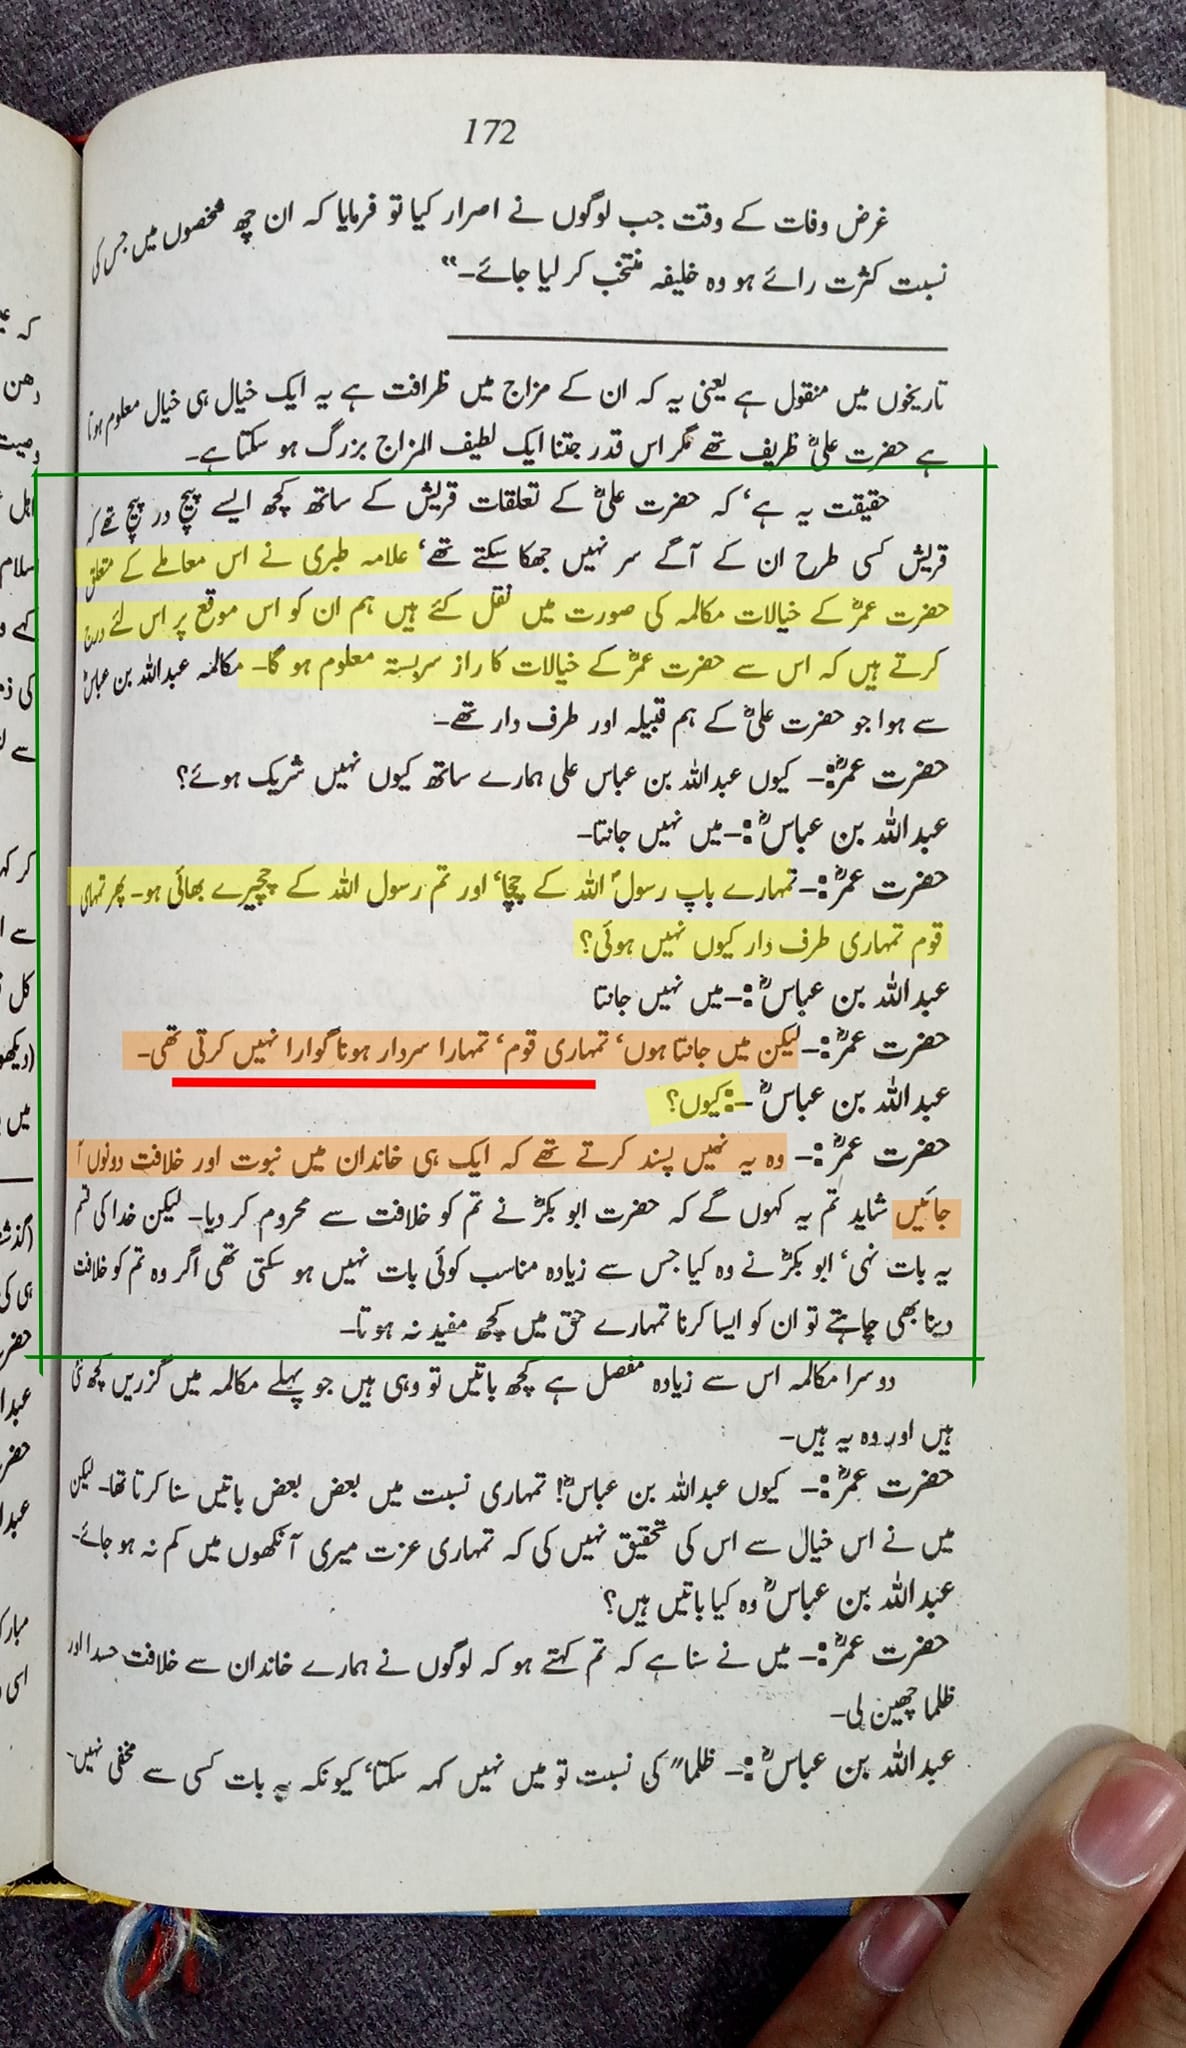 172
غرض وفات کے وقت جب لوگوں نے اصرار کیا تو فرمایا کہ ان چھ شخصوں میں جس کی
نسبت کثرت رائے ہو وہ خلیفہ منتخب کر لیا جائے۔"
تاریخوں میں منقول ہے یعنی یہ کہ ان کے مزاج میں ظرافت ہے یہ ایک خیال ہی خیال معلوم ہوتا
ہے حضرت علیؓ ظریف تھے مگر اس قدر جتنا ایک لطیف المزاج بزرگ ہو سکتا ہے۔
حقیقت یہ ہے، کہ حضرت علیؓ کے تعلقات قریش کے ساتھ کچھ ایسے پیچ در پیچ تھے کہ
قریش کسی طرح ان کے آگے سر نہیں جھکا سکتے تھے، علامہ طبری نے اس معاملے کے متعلق
حضرت عمرؓ کے خیالات مکالمہ کی صورت میں نقل کئے ہیں ہم ان کو اس موقع پر اس لئے درج
کرتے ہیں کہ اس سے حضرت عمرؓ کے خیالات کا راز سربستہ معلوم ہو گا۔ مکالمہ عبداللہ بن عباسؓ
سے ہوا جو حضرت علیؓ کے ہم قبیلہ اور طرف دار تھے۔
حضرت عمرؓ:۔ کیوں عبداللہ بن عباس علی ہمارے ساتھ کیوں نہیں شریک ہوئے؟
عبداللہ بن عباسؓ:۔ میں نہیں جانتا۔
حضرت عمرؓ:۔ تمہارے باپ رسولؐ اللہ کے چچا، اور تم رسول اللہ کے چچیرے بھائی ہو۔ پھر تمہاری
قوم تمہاری طرف دار کیوں نہیں ہوئی؟
عبداللہ بن عباسؓ:۔ میں نہیں جانتا
حضرت عمرؓ:۔ لیکن میں جانتا ہوں، تمہاری قوم، تمہارا سردار ہونا گوارا نہیں کرتی تھی۔
عبداللہ بن عباسؓ ۔: کیوں؟
حضرت عمرؓ:۔ وہ یہ نہیں پسند کرتے تھے کہ ایک ہی خاندان میں نبوت اور خلافت دونوں آ
جائیں شاید تم یہ کہوں گے کہ حضرت ابو بکرؓ نے تم کو خلافت سے محروم کر دیا۔ لیکن خدا کی قسم
یہ بات نہی، ابو بکرؓ نے وہ کیا جس سے زیادہ مناسب کوئی بات نہیں ہو سکتی تھی اگر وہ تم کو خلافت
دینا بھی چاہتے تو ان کو ایسا کرنا تمہارے حق میں کچھ مفید نہ ہوتا۔
دوسرا مکالمہ اس سے زیادہ مفصل ہے کچھ باتیں تو وہی ہیں جو پہلے مکالمہ میں گزریں کچھ نئی
ہیں اور وہ یہ ہیں۔
حضرت عمرؓ:۔ کیوں عبداللہ بن عباسؓ! تمہاری نسبت میں بعض بعض باتیں سنا کرتا تھا۔ لیکن
میں نے اس خیال سے اس کی تحقیق نہیں کی کہ تمہاری عزت میری آنکھوں میں کم نہ ہو جائے۔
عبداللہ بن عباسؓ وہ کیا باتیں ہیں؟
حضرت عمرؓ:۔ میں نے سنا ہے کہ تم کہتے ہو کہ لوگوں نے ہمارے خاندان سے خلافت حسدا اور
ظلما چھین لی۔
عبداللہ بن عباسؓ:۔ ظلما" کی نسبت تو میں نہیں کہہ سکتا، کیونکہ یہ بات کسی سے مخفی نہیں۔